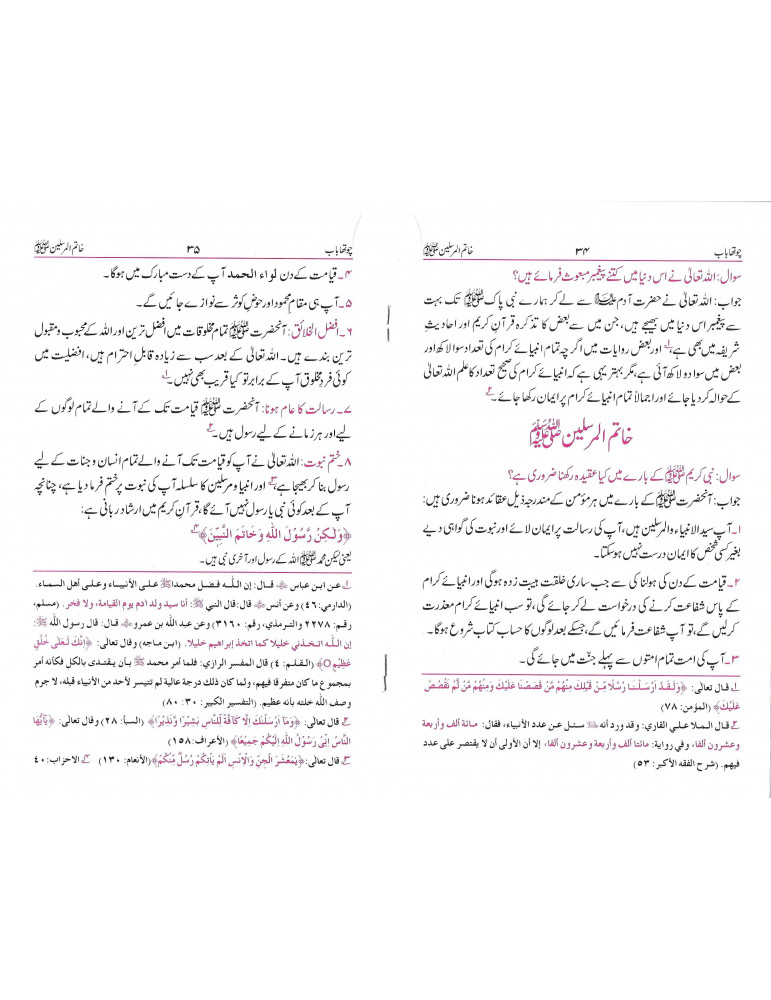 چوتھا باب ۳۴ خاتم المرسلین ﷺ
سوال: اللہ تعالیٰ نے اس دنیا میں کتنے پیغمبر مبعوث فرمائے ہیں؟
جواب: اللہ تعالیٰ نے حضرت آدم علیہ السلام سے لے کر ہمارے نبی پاک ﷺ تک بہت
سے پیغمبر اس دنیا میں بھیجے ہیں، جن میں سے بعض کا تذکرہ قرآنِ کریم اور احادیثِ
شریفہ میں بھی ہے، اور بعض روایات میں اگرچہ تمام انبیائے کرام کی تعداد سوا لاکھ اور
بعض میں سوا دو لاکھ آئی ہے، مگر بہتر یہی ہے کہ انبیائے کرام کی صحیح تعداد کا علم اللہ تعالیٰ
کے حوالہ کر دیا جائے اور اجمالاً تمام انبیائے کرام پر ایمان رکھا جائے۔
خاتم المرسلین ﷺ
سوال: نبی کریم ﷺ کے بارے میں کیا عقیدہ رکھنا ضروری ہے؟
جواب: آنحضرت ﷺ کے بارے میں ہر مؤمن کے مندرجہ ذیل عقائد ہونا ضروری ہیں:
۱۔ آپ سید الانبیاء والمرسلین ہیں، آپ کی رسالت پر ایمان لائے اور نبوت کی گواہی دیے
بغیر کسی شخص کا ایمان درست نہیں ہو سکتا۔
۲۔ قیامت کے دن کی ہولناکی سے جب ساری خلقت ہیبت زدہ ہوگی اور انبیائے کرام
کے پاس شفاعت کرنے کی درخواست لے کر جائے گی، تو سب انبیائے کرام معذرت
کرلیں گے، تو آپ شفاعت فرمائیں گے، جسکے بعد لوگوں کا حساب کتاب شروع ہوگا۔
۳۔ آپ کی امت تمام امتوں سے پہلے جنّت میں جائے گی۔
۱ قال تعالٰى: ﴿وَلَقَدْ اَرْسَلْنَا رُسُلًا مِّنْ قَبْلِكَ مِنْهُمْ مَّنْ قَصَصْنَا عَلَيْكَ وَمِنْهُمْ مَّنْ لَّمْ نَقْصُصْ
عَلَيْكَ﴾ (المؤمن: ۷۸)
۲ قال الملا علي القاري: وقد ورد أنه ﷺ سئل عن عدد الأنبياء، فقال: مائة ألف وأربعة
وعشرون ألفا، وفي رواية: مائتا ألف وأربعة وعشرون ألفا، إلا أن الأولى أن لا يقتصر على عدد
فيهم. (شرح الفقه الأكبر: ۵۳)
چوتھا باب ۳۵ خاتم المرسلین ﷺ
۴۔ قیامت کے دن لواء الحمد آپ کے دست مبارک میں ہوگا۔
۵۔ آپ ہی مقامِ محمود اور حوضِ کوثر سے نوازے جائیں گے۔
۶۔ افضل الخلائق: آنحضرت ﷺ تمام مخلوقات میں افضل ترین اور اللہ کے محبوب ومقبول
ترین بندے ہیں۔ اللہ تعالیٰ کے بعد سب سے زیادہ قابلِ احترام ہیں، افضلیت میں
کوئی فردِ مخلوق آپ کے برابر تو کیا قریب بھی نہیں۔ ۱
۷۔ رسالت کا عام ہونا: آنحضرت ﷺ قیامت تک کے آنے والے تمام لوگوں کے
لیے اور ہر زمانے کے لیے رسول ہیں۔ ۲
۸۔ ختم نبوت: اللہ تعالیٰ نے آپ کو قیامت تک آنے والے تمام انسان وجنات کے لیے
رسول بنا کر بھیجا ہے، ۳ اور انبیا ومرسلین کا سلسلہ آپ کی نبوت پر ختم فرما دیا ہے، چنانچہ
آپ کے بعد کوئی نبی یا رسول نہیں آئے گا، قرآنِ کریم میں ارشادِ ربانی ہے:
﴿وَلٰكِنْ رَّسُوْلَ اللّٰهِ وَخَاتَمَ النَّبِيّٖنَ﴾ ۴
یعنی لیکن محمد ﷺ اللہ کے رسول اور آخری نبی ہیں۔
۱ عن ابن عباس ؓ قال: إن اللّٰه فضل محمداﷺ على الأنبياء وعلى أهل السماء.
(الدارمي: ٤٦) وعن أنس ؓ قال: قال النبي ﷺ: أنا سيد ولد ادم يوم القيامة، ولا فخر. (مسلم،
رقم: ۲۲۷۸ والترمذي، رقم: ۳۱۶۰) وعن عبد الله بن عمرو ؓ قال: قال رسول الله ﷺ:
إن اللّٰه اتخذني خليلا كما اتخذ إبراهيم خليلا. (ابن ماجه) وقال تعالى: ﴿اِنَّكَ لَعَلٰى خُلُقٍ
عَظِيْمٍ﴾ (القلم: ٤) قال المفسر الرازي: فلما أمر محمد ﷺ بأن يقتدى بالكل فكأنه أمر
بمجموع ما كان متفرقا فيهم، ولما كان ذلك درجة عالية لم تتيسر لأحد من الأنبياء قبله، لا جرم
وصف اللّٰه خلقه بأنه عظيم. (التفسير الكبير: ۳۰: ۸۰)
۲ قال تعالى: ﴿وَمَآ اَرْسَلْنٰكَ اِلَّا كَآفَّةً لِّلنَّاسِ بَشِيْرًا وَّنَذِيْرًا﴾ (السبأ: ۲۸) وقال تعالى: ﴿يٰٓاَيُّهَا
النَّاسُ اِنِّيْ رَسُوْلُ اللّٰهِ اِلَيْكُمْ جَمِيْعًا﴾ (الأعراف: ۱۵۸)
۳ قال تعالى: ﴿يٰمَعْشَرَ الْجِنِّ وَالْاِنْسِ اَلَمْ يَاْتِكُمْ رُسُلٌ مِّنْكُمْ﴾ (الأنعام: ۱۳۰) ۴ الاحزاب: ٤٠